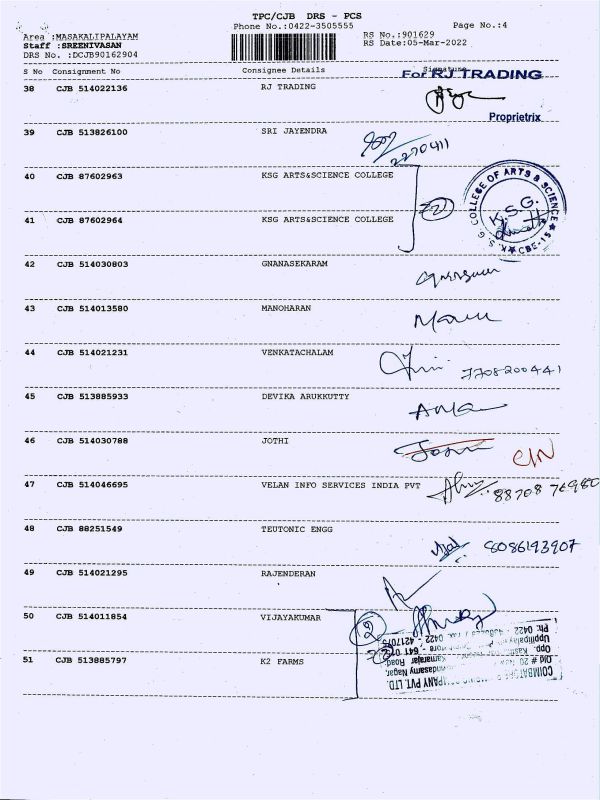 TPC/CJB DRS - PCS
Phone No.:0422-3505555
Page No.:4
Area :MASAKALIPALAYAM
Staff :SREENIVASAN
DRS No. :DCJB90162904
RS No.:901629
RS Date:05-Mar-2022
S No Consignment No Consignee Details Signature
For RJ TRADING
38 CJB 514022136 RJ TRADING
Proprietrix
39 CJB 513826100 SRI JAYENDRA
2270411
40 CJB 87602963 KSG ARTS&SCIENCE COLLEGE
K.S.G. COLLEGE OF ARTS & SCIENCE
K.S.G.
★ CBE-15 ★
41 CJB 87602964 KSG ARTS&SCIENCE COLLEGE
42 CJB 514030803 GNANASEKARAM
43 CJB 514013580 MANOHARAN
44 CJB 514021231 VENKATACHALAM
7708200441
45 CJB 513885933 DEVIKA ARUKKUTTY
46 CJB 514030788 JOTHI
47 CJB 514046695 VELAN INFO SERVICES INDIA PVT
88708 76980
48 CJB 88251549 TEUTONIC ENGG
8086193907
49 CJB 514021295 RAJENDERAN
50 CJB 514011854 VIJAYAKUMAR
2
51 CJB 513885797 K2 FARMS
COIMBATORE
PVT. LTD.
Old # 20
Nagar,
Opp.
Kamarajar Road,
Uppilipalayam
Ph: 0422